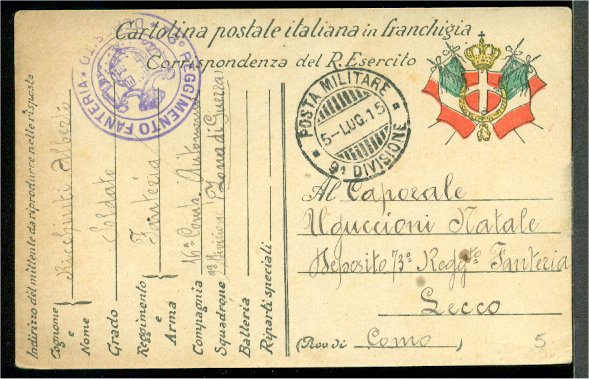 Cartolina postale italiana in franchigia
Corrispondenza del R. Esercito
REGGIMENTO FANTERIA
POSTA MILITARE
5-LUG.15
9ª DIVISIONE
Al Caporale
Uguccioni Natale
Deposito 73º Regg.to Fanteria
Lecco
(Prov. di Como)
5
Indirizzo del mittente da riprodurre nelle risposte
Cognome e Nome Alberto
Grado Soldato
Reggimento e Arma Fanteria
Compagnia 16ª Comp.
Squadrone 9ª Divisione Zona di Guerra
Batteria
Riparti speciali